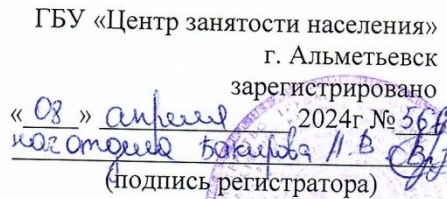 ГБУ «Центр занятости населения»
г. Альметьевск
зарегистрировано
«08» апреля 2024г №
нач отдела Бакирова
(подпись регистратора)